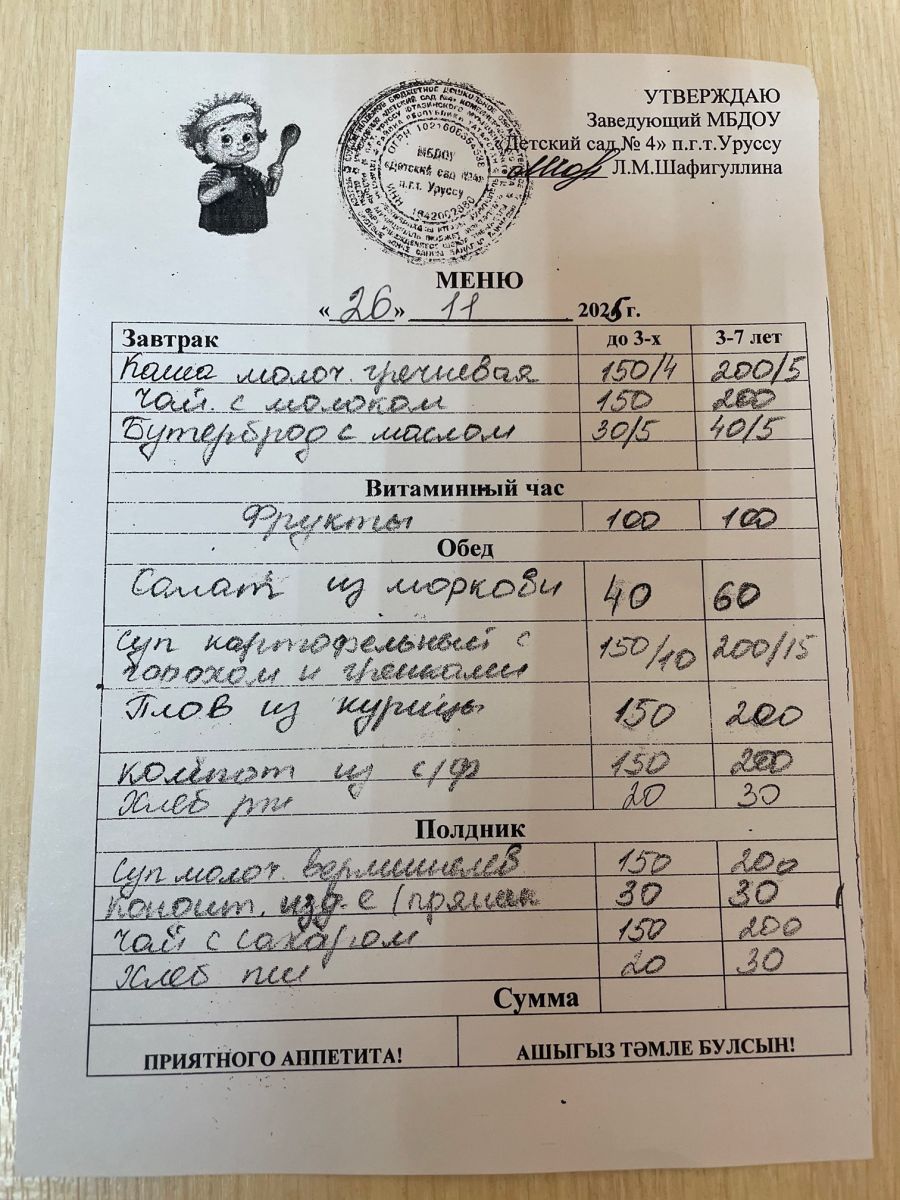 УТВЕРЖДАЮ
Заведующий МБДОУ
«Детский сад № 4» п.г.т.Уруссу
Л.М.Шафигуллина
МБДОУ
«Детский сад №4»
п.г.т. Уруссу
МЕНЮ
«26» 11 2025 г.
Завтрак до 3-х 3-7 лет
Каша молоч. гречневая 150/4 200/5
Чай с молоком 150 200
Бутерброд с маслом 30/5 40/5
Витаминный час
Фрукты 100 100
Обед
Салат из моркови 40 60
Суп картофельный с
горохом и гренками 150/10 200/15
Плов из курицы 150 200
компот из с/ф 150 200
Хлеб рж 20 30
Полдник
Суп молоч. вермишелев 150 200
Кондит. изд. (пряник 30 30
Чай с сахаром 150 200
Хлеб пш 20 30
Сумма
ПРИЯТНОГО АППЕТИТА! АШЫГЫЗ ТӘМЛЕ БУЛСЫН!